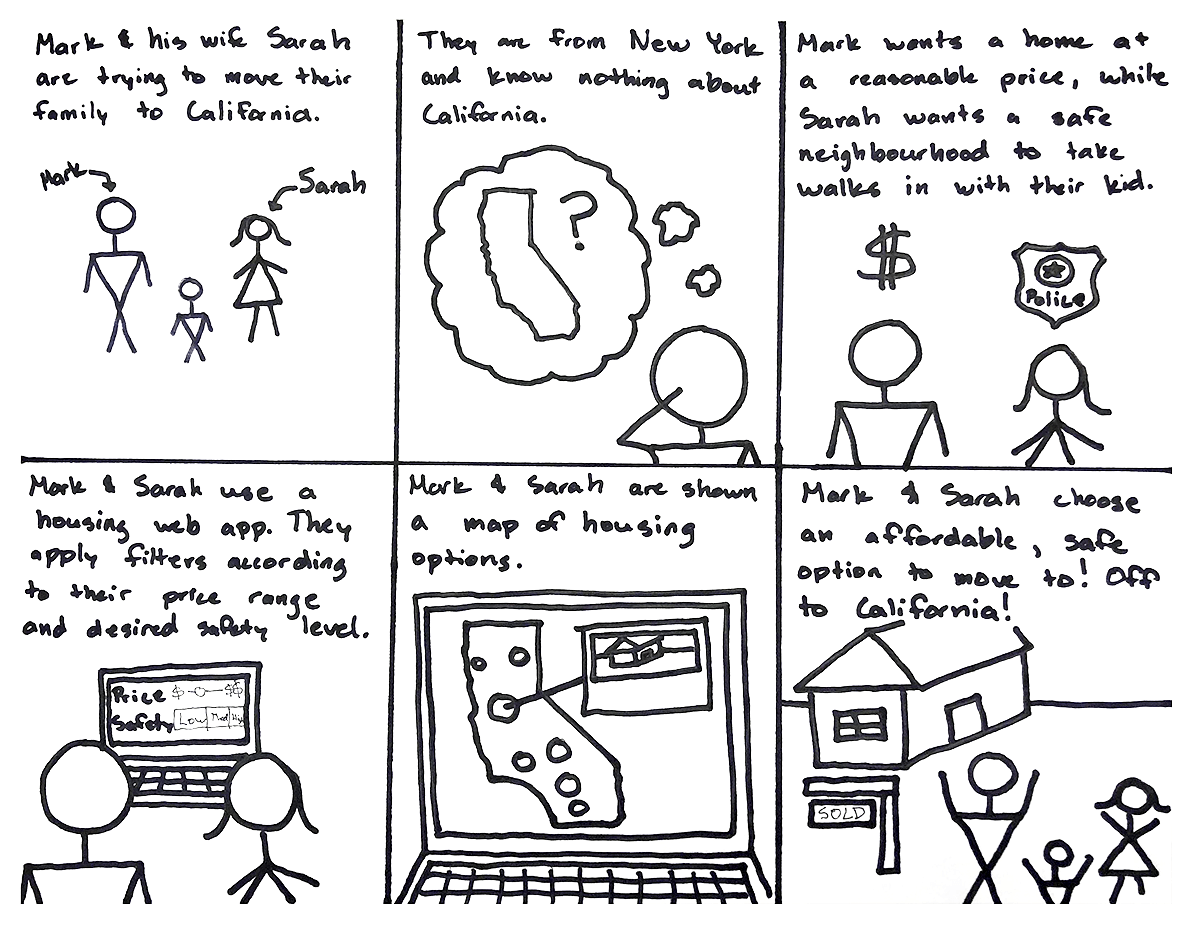 Mark & his wife Sarah
are trying to move their
family to California.
Mark
Sarah
They are from New York
and know nothing about
California.
?
Mark wants a home at
a reasonable price, while
Sarah wants a safe
neighbourhood to take
walks in with their kid.
$
Police
Mark & Sarah use a
housing web app. They
apply filters according
to their price range
and desired safety level.
Price $ $$
Safety Low Med High
Mark & Sarah are shown
a map of housing
options.
Mark & Sarah choose
an affordable, safe
option to move to! Off
to California!
SOLD